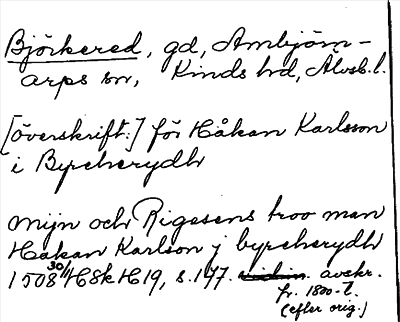 Björkered, gd, Ambjörn-
arps sn, Kinds hd, Älvsb. l.
[överskrift:] för Håkan Karlsson
i Byrcherydh
mijn och Rigesens troo man
Håkan Karlson j byrcherydh
1508 30/11 HSk H19, s. 177. avskr.
fr. 1800-t.
(efter orig.)